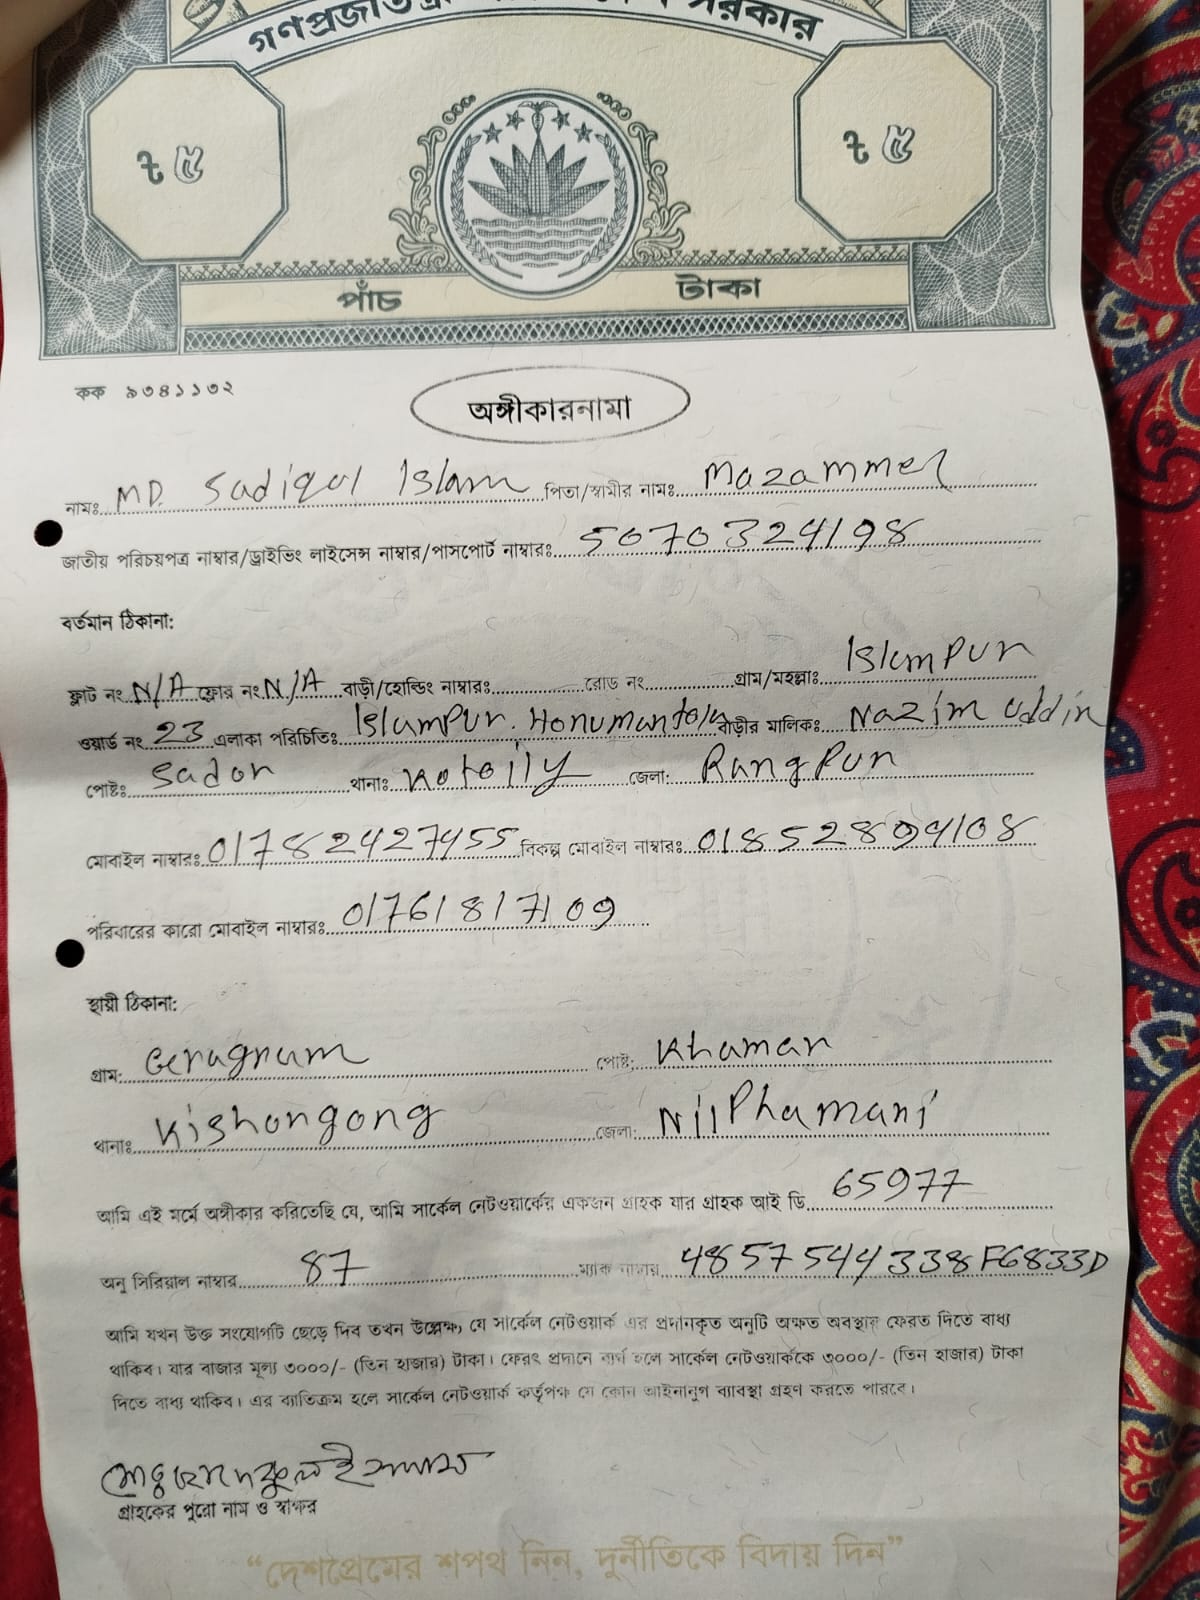 গণপ্রজাতন্ত্রী বাংলাদেশ সরকার
৳ ৫ ৳ ৫
পাঁচ টাকা
কক ৯৩৪১১৩২
অঙ্গীকারনামা
নামঃ MD. Sadiqol Islam পিতা/স্বামীর নামঃ Mazammel
জাতীয় পরিচয়পত্র নাম্বার/ড্রাইভিং লাইসেন্স নাম্বার/পাসপোর্ট নাম্বারঃ 5070324198
বর্তমান ঠিকানা:
ফ্লাট নং N/A ফ্লোর নং N/A বাড়ী/হোল্ডিং নাম্বারঃ রোড নং গ্রাম/মহল্লাঃ Islampur
ওয়ার্ড নং 23 এলাকা পরিচিতিঃ Islampur. Honumantola বাড়ীর মালিকঃ Nazim uddin
পোষ্টঃ Sador থানাঃ Kotolly জেলা: Rangpur
মোবাইল নাম্বারঃ 01782427455 বিকল্প মোবাইল নাম্বারঃ 01852894108
পরিবারের কারো মোবাইল নাম্বারঃ 01761817109
স্থায়ী ঠিকানা:
গ্রাম: Geragram পোষ্ট: Khamar
থানাঃ Kishorgong জেলা: Nilphamari
আমি এই মর্মে অঙ্গীকার করিতেছি যে, আমি সার্কেল নেটওয়ার্কের একজন গ্রাহক যার গ্রাহক আই ডি 65977
অনু সিরিয়াল নাম্বার 87 ম্যাক নাম্বার 48575444338F6833D
আমি যখন উক্ত সংযোগটি ছেড়ে দিব তখন উল্লেক্ষ্য যে সার্কেল নেটওয়ার্ক এর প্রদানকৃত অনুটি অক্ষত অবস্থায় ফেরত দিতে বাধ্য
থাকিব। যার বাজার মূল্য ৩০০০/- (তিন হাজার) টাকা। ফেরৎ প্রদানে ব্যর্থ হলে সার্কেল নেটওয়ার্ককে ৩০০০/- (তিন হাজার) টাকা
দিতে বাধ্য থাকিব। এর ব্যাতিক্রম হলে সার্কেল নেটওয়ার্ক কর্তৃপক্ষ যে কোন আইনানুগ ব্যাবস্থা গ্রহণ করতে পারবে।
গ্রাহকের পুরো নাম ও স্বাক্ষর
“দেশপ্রেমের শপথ নিন, দুর্নীতিকে বিদায় দিন”